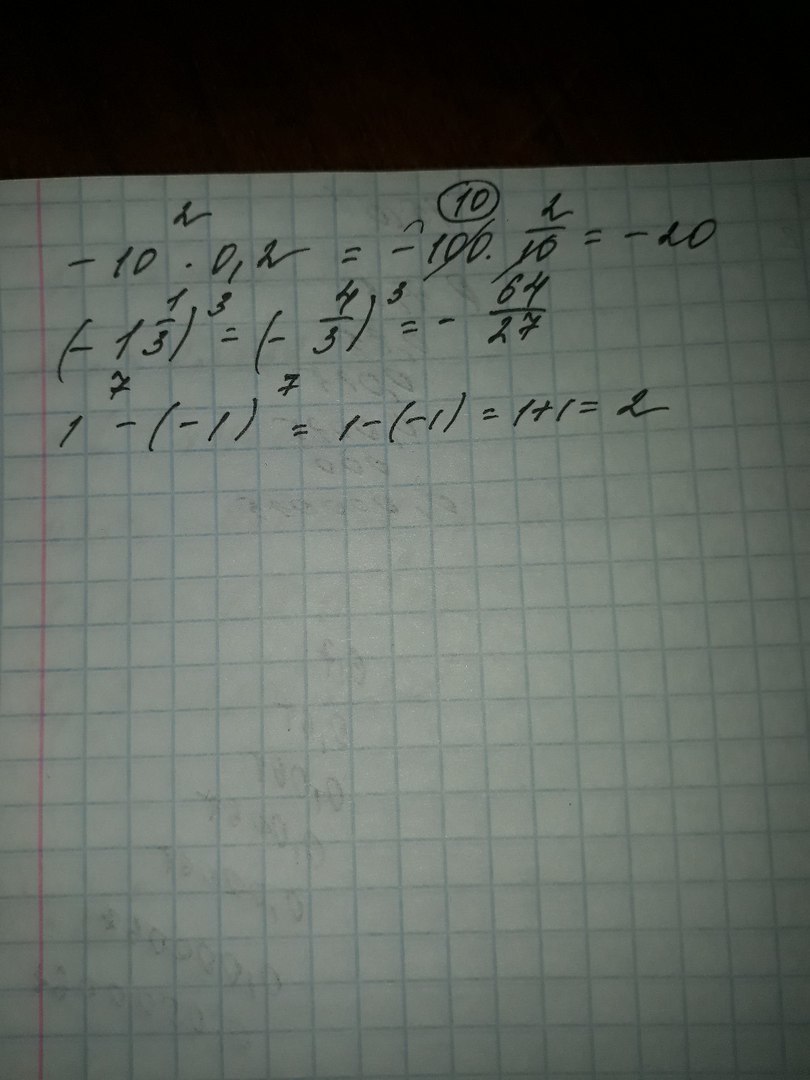 -10² · 0,2 = -100 · 2/10 = -20
(-1 1/3)³ = (- 4/3)³ = - 64/27
1⁷ - (-1)⁷ = 1-(-1) = 1+1 = 2